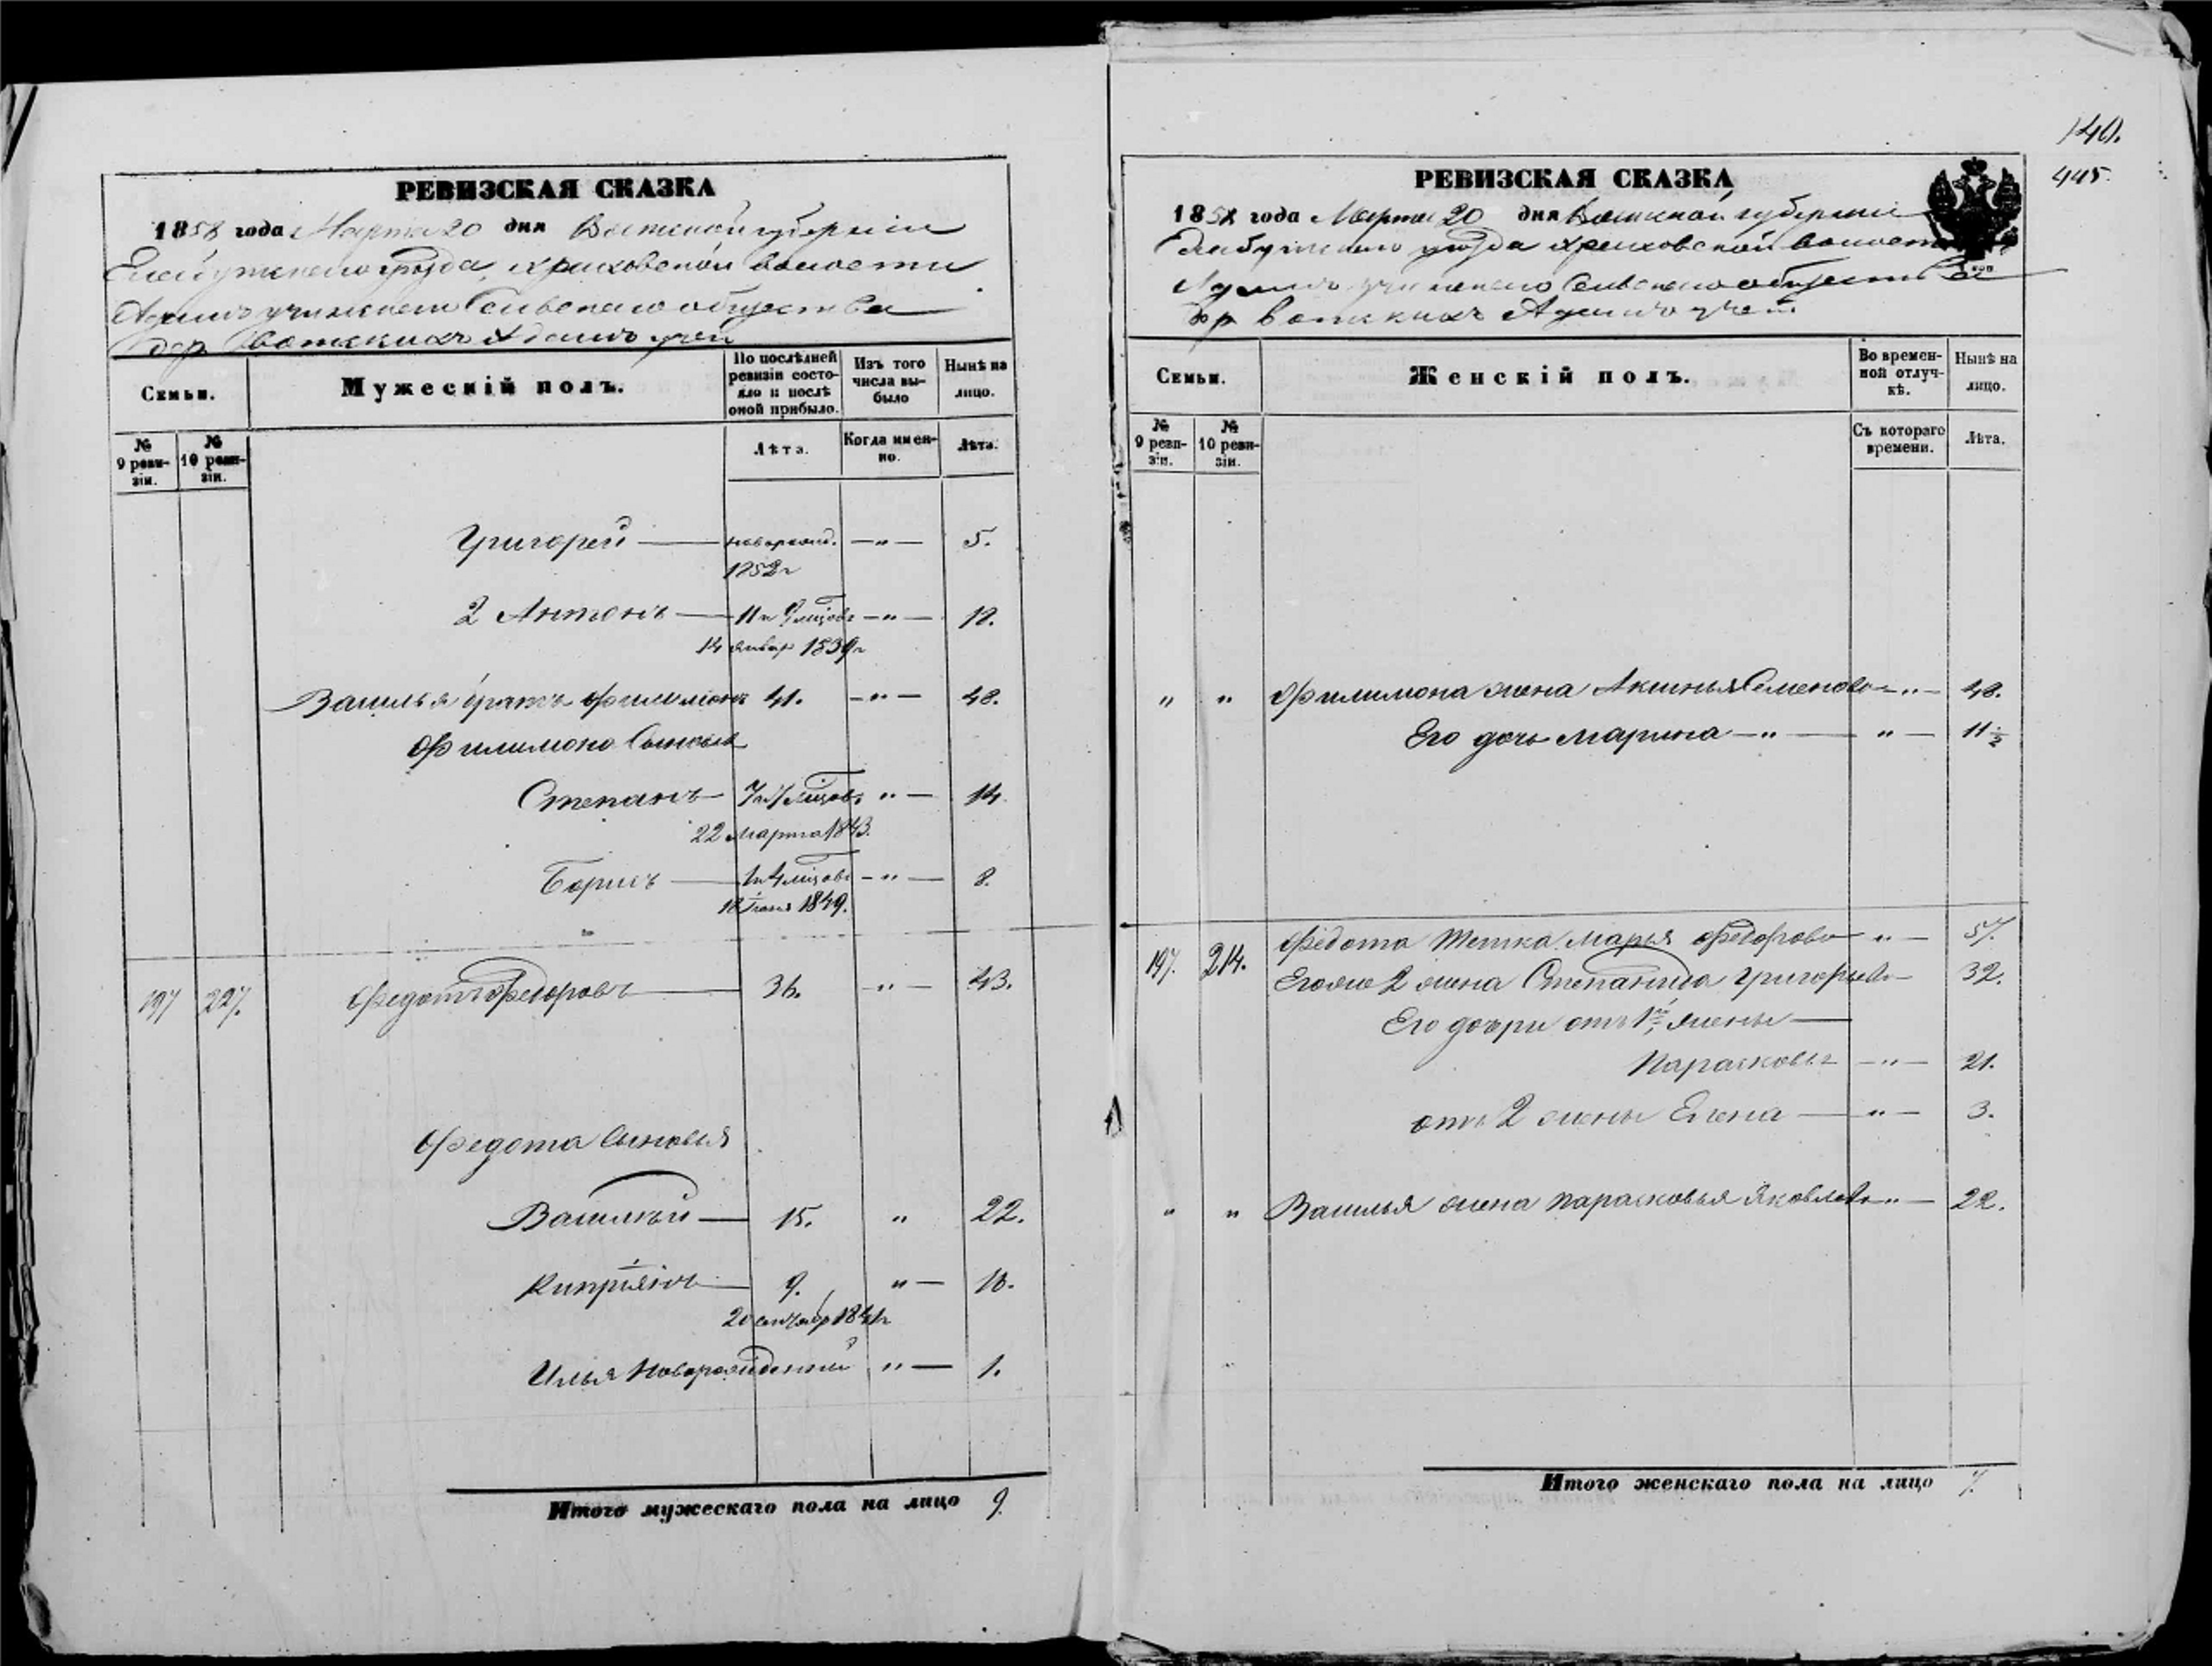 РЕВИЗСКАЯ СКАЗКА
1858 года Марта 20 дня Вятской губернии
Елабужского уезда, волости
Сельского общества
дер. Вотских
Семьи.
Мужескій полъ.
По послѣдней ревизіи состояло и послѣ оной прибыло.
Изъ того числа выбыло
Ныне на лицо.
№ 9 ревизіи.
№ 10 ревизіи.
Лѣта.
Когда именно.
Лѣта.
Григорей — новорожд. — " — 5.
1852 г
2 Антонъ — 11 и — " — 18.
14 январ 1839 г
Василья братъ Филимонъ 41. — " — 48.
Филимона Сыновья
Степанъ — " — 14
22 марта 1843.
Борисъ — — " — 8.
1849.
197 227. Федотъ Федоровъ — 36. — " — 43.
Федота Сыновья
Василий — 15. " 22.
Киприянъ — 9. " — 16.
1841 г
Илья Новорожденный " — 1.
Итого мужескаго пола на лицо 9.
140.
445.
РЕВИЗСКАЯ СКАЗКА
1858 года Марта 20 дня Вятской губернии
Елабужского уезда волости
Сельского общества
дер Вотских
Семьи.
Женскій полъ.
Во временной отлучкѣ.
Ныне на лицо.
№ 9 ревизіи.
№ 10 ревизіи.
Съ котораго времени.
Лѣта.
" " Филимона жена Аксинья Семенова — " — 48.
Его дочь Марина — " — " — 11 ½
197. 214. Федота тетка Марья Федорова — " — 57.
Егоже 2 жена Степанида Григорьева — 32.
Его дочри отъ 1й жены —
Парасковья — " — 21.
отъ 2 жены Елена — " — 3.
" " Василья жена Парасковья Яковлева — " — 22.
Итого женскаго пола на лицо 7.